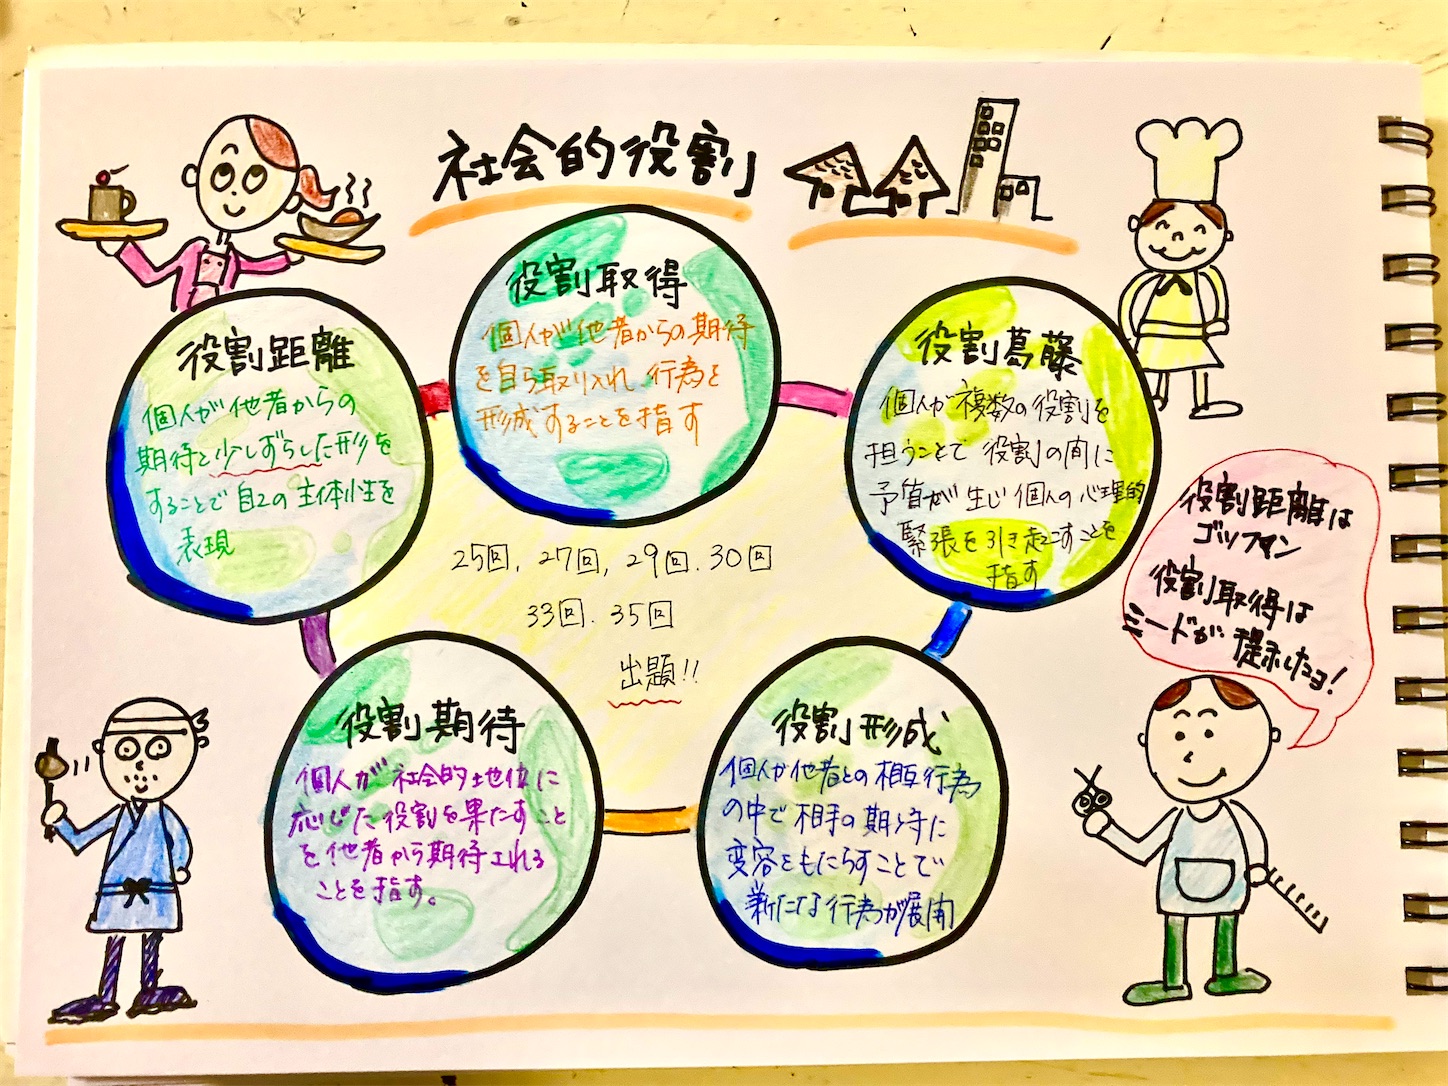 社会的役割
役割距離
個人が他者からの
期待と少しずらした形を
することで自己の主体性を
表現
役割取得
個人が他者からの期待
を自ら取り入れ 行為を
形成することを指す
役割葛藤
個人が複数の役割を
担うことで 役割の間に
予盾が生じ 個人の心理的
緊張を引き起こすことを
指す
役割距離は
ゴッフマン
役割取得は
ミードが 提示したヨ!
25回, 27回, 29回. 30回
33回. 35回
出題!!
役割期待
個人が 社会的地位に
応じた役割を果たすこと
を他者から期待される
ことを指す。
役割形成
個人が他者との相互行為
の中で相手の期待に
変容をもたらすことで
新たな行為が展開